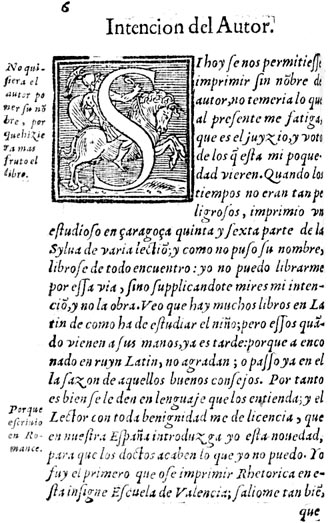 6
Intencion del Autor.
No qui-
siera el
autor po
ner su nō
bre, por
que hizie
ra mas
fruto el
libro.
SI hoy se nos permitiesse
imprimir sin nōbre de
autor, no temeria lo que
al presente me fatiga,
que es el juyzio, y voto
de los q̃ esta mi poque-
dad vieren. Quando los
tiempos no eran tan pe
ligrosos, imprimio vn
estudioso en çaragoça quinta y sexta parte de la
Sylua de varia lectiō; y como no puso su nombre,
librose de todo encuentro: yo no puedo librarme
por essa via, sino supplicandote mires mi inten-
ciō, y no la obra. Veo que hay muchos libros en La
tin de como ha de estudiar el niño; pero essos quā-
do vienen a sus manos, ya es tarde: porque a enco
nado en ruyn Latin, no agradan; o passo ya en el
la sazon de aquellos buenos consejos. Por tanto
es bien se le den en lenguaje que los entienda; y el
Lector con toda benignidad me de licencia, que
en nuestra España introduzga yo esta nouedad,
para que los doctos acaben lo que yo no puedo. Yo
fuy el primero que ose imprimir Rhetorica en e-
sta insigne Escuela de Valencia; saliome tan biē,
que
Porque
escriuio
en Ro-
mance.